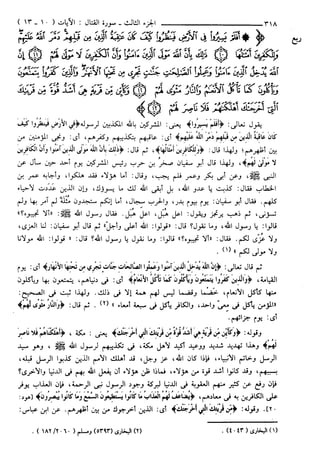 ٣١٨ الجزء الثالث - سورة القتال : الآيات ( ١٠ - ١٣ )
﴿ أَفَلَمْ يَسِيرُوا فِي الْأَرْضِ فَيَنظُرُوا كَيْفَ كَانَ عَاقِبَةُ الَّذِينَ مِن قَبْلِهِمْ دَمَّرَ اللَّهُ عَلَيْهِمْ
وَلِلْكَافِرِينَ أَمْثَالُهَا (١٠) ذَٰلِكَ بِأَنَّ اللَّهَ مَوْلَى الَّذِينَ آمَنُوا وَأَنَّ الْكَافِرِينَ لَا مَوْلَىٰ لَهُمْ (١١) إِنَّ
اللَّهَ يُدْخِلُ الَّذِينَ آمَنُوا وَعَمِلُوا الصَّالِحَاتِ جَنَّاتٍ تَجْرِي مِن تَحْتِهَا الْأَنْهَارُ وَالَّذِينَ كَفَرُوا يَتَمَتَّعُونَ
وَيَأْكُلُونَ كَمَا تَأْكُلُ الْأَنْعَامُ وَالنَّارُ مَثْوًى لَّهُمْ (١٢) وَكَأَيِّن مِّن قَرْيَةٍ هِيَ أَشَدُّ قُوَّةً مِّن قَرْيَتِكَ
الَّتِي أَخْرَجَتْكَ أَهْلَكْنَاهُمْ فَلَا نَاصِرَ لَهُمْ (١٣) ﴾
يقول تعالى: ﴿أَفَلَمْ يَسِيرُوا﴾ يعنى: المشركين بالله المكذبين لرسوله ﴿فِي الأَرْضِ فَيَنظُرُوا كَيْفَ
كَانَ عَاقِبَةُ الَّذِينَ مِن قَبْلِهِمْ دَمَّرَ اللَّهُ عَلَيْهِمْ﴾ أى: عاقبهم بتكذيبهم وكفرهم، أى: ونجى المؤمنين من
بين أظهرهم؛ ولهذا قال: ﴿وَلِلْكَافِرِينَ أَمْثَالُهَا﴾. ثم قال: ﴿ذَلِكَ بِأَنَّ اللَّهَ مَوْلَى الَّذِينَ آمَنُوا وَأَنَّ الْكَافِرِينَ
لا مَوْلَى لَهُمْ﴾، ولهذا لما قال أبو سفيان صخر بن حرب رئيس المشركين يوم أحد حين سأل عن
النبى ﷺ، وعن أبى بكر وعمر فلم يجب، وقال: أما هؤلاء فقد هلكوا، وأجابه عمر بن
الخطاب فقال: كذبت يا عدو الله، بل أبقى الله لك ما يسوؤك، وإن الذين عَدَدت لأحياء
كلهم. فقال أبو سفيان: يوم بيوم بدر، والحرب سجال، أما إنكم ستجدون مُثْلَةً لم آمر بها ولم
تسؤنى، ثم ذهب يرتجز ويقول: اعل هُبَل، اعل هُبَل. فقال رسول الله ﷺ: «ألا تجيبوه؟»
قالوا: يا رسول الله، وما نقول؟ قال: «قولوا: الله أعلى وأجل» ثم قال أبو سفيان: لنا العزى،
ولا عُزّى لكم. فقال: «ألا تجيبوه؟» قالوا: وما نقول يا رسول الله؟ قال: « قولوا: الله مولانا
ولا مولى لكم » (١) .
ثم قال تعالى: ﴿إِنَّ اللَّهَ يُدْخِلُ الَّذِينَ آمَنُوا وَعَمِلُوا الصَّالِحَاتِ جَنَّاتٍ تَجْرِي مِن تَحْتِهَا الأَنْهَارُ﴾ أى: يوم
القيامة، ﴿وَالَّذِينَ كَفَرُوا يَتَمَتَّعُونَ وَيَأْكُلُونَ كَمَا تَأْكُلُ الأَنْعَامُ﴾ أى: فى دنياهم، يتمتعون بها ويأكلون
منها كأكل الأنعام، خضما وقضما ليس لهم همة إلا فى ذلك. ولهذا ثبت فى الصحيح:
«المؤمن يأكل فى مِعى واحد، والكافر يأكل فى سبعة أمعاء» (٢) . ثم قال: ﴿وَالنَّارُ مَثْوًى لَهُمْ﴾
أى: يوم جزائهم.
وقوله: ﴿وَكَأَيِّن مِّن قَرْيَةٍ هِيَ أَشَدُّ قُوَّةً مِّن قَرْيَتِكَ الَّتِي أَخْرَجَتْكَ﴾ يعنى: مكة، ﴿أَهْلَكْنَاهُمْ فَلا نَاصِرَ
لَهُمْ﴾ وهذا تهديد شديد ووعيد أكيد لأهل مكة، فى تكذيبهم لرسول الله ﷺ، وهو سيد
الرسل وخاتم الأنبياء، فإذا كان الله، عز وجل، قد أهلك الأمم الذين كذبوا الرسل قبله،
بسببهم، وقد كانوا أشد قوة من هؤلاء، فماذا ظن هؤلاء أن يفعل الله بهم فى الدنيا والأخرى؟
فإن رفع عن كثير منهم العقوبة فى الدنيا لبركة وجود الرسول نبى الرحمة، فإن العذاب يوفر
على الكافرين به فى معادهم، ﴿يُضَاعَفُ لَهُمُ الْعَذَابُ مَا كَانُوا يَسْتَطِيعُونَ السَّمْعَ وَمَا كَانُوا يُبْصِرُونَ﴾ [هود:
٢٠]. وقوله: ﴿مِّن قَرْيَتِكَ الَّتِي أَخْرَجَتْكَ﴾ أى: الذين أخرجوك من بين أظهرهم. عن ابن عباس:
(١) البخارى (٤٠٤٣) . (٢) البخارى (٥٣٩٣) ومسلم (٢٠٦٠ / ١٨٢) .
ربع